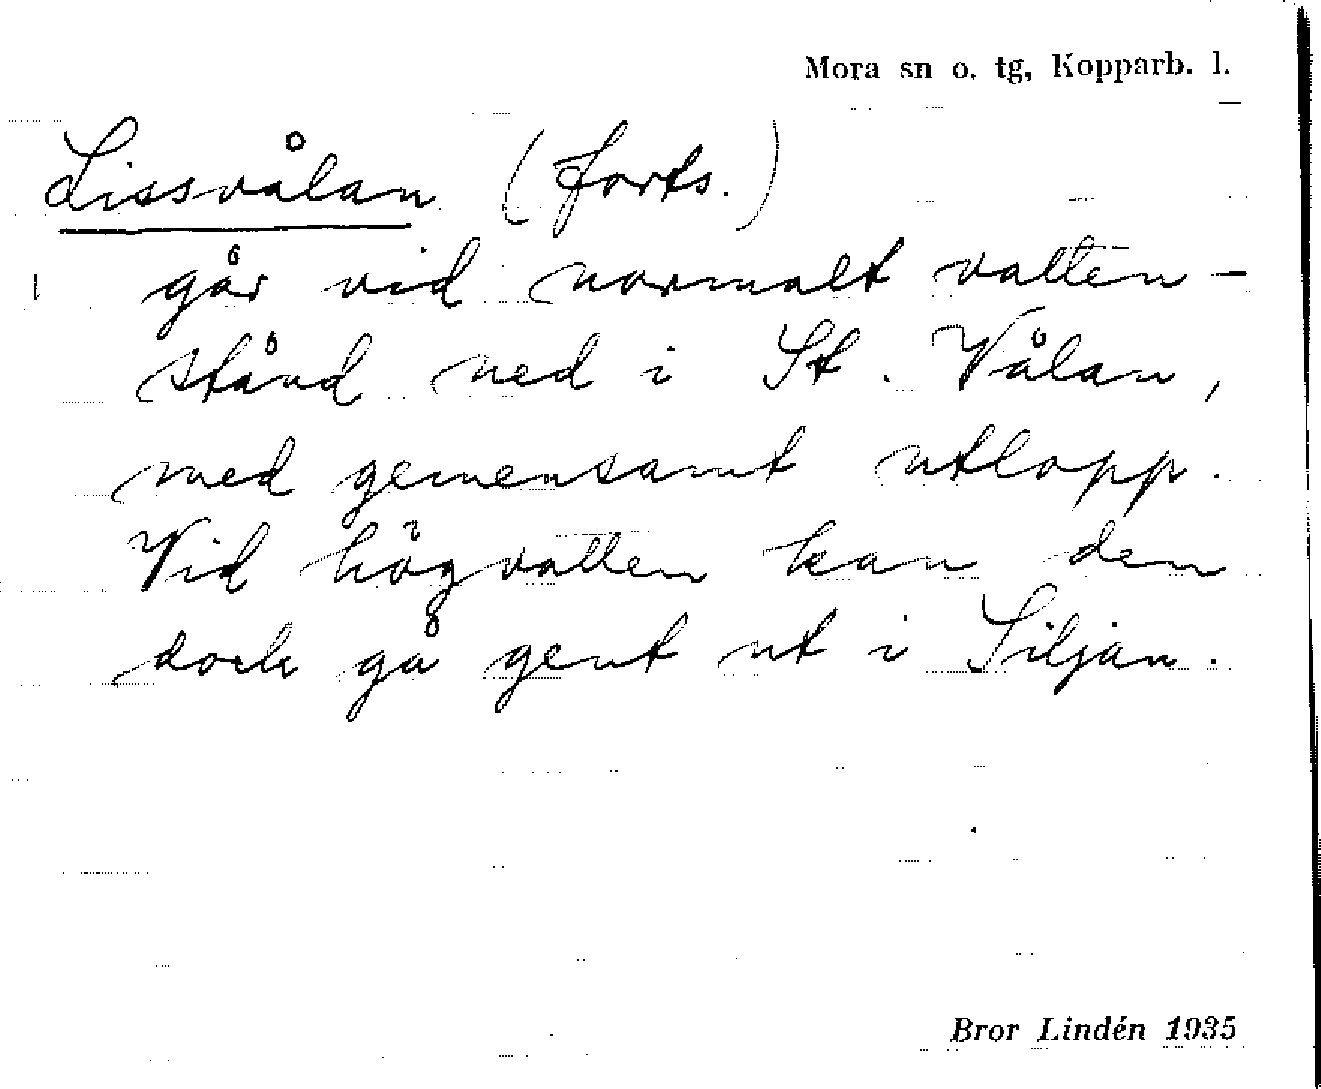 Mora sn o. tg, Kopparb. l.
Lissvålan (forts.)
går vid normalt vatten-
stånd ned i St. Vålan,
med gemensamt utlopp.
Vid högvatten kan den
dock gå gent ut i Siljan.
Bror Lindén 1935